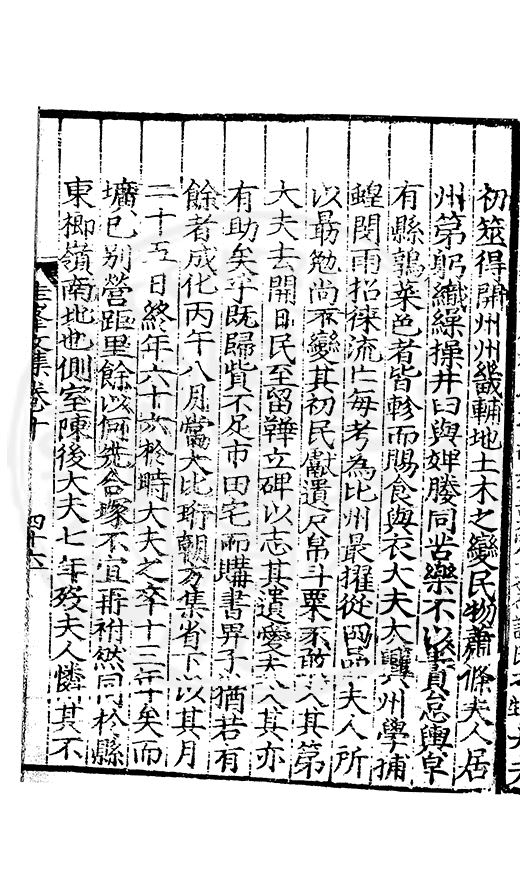 初筮得開州州畿輔地土木之變民物蕭條夫人居
州第躬織繰操井臼與婢媵同苦樂不以貴怠輿皁
有縣鶉菜色者皆軫而賜食與衣大夫大興州學捕
蝗閔雨招徠流亡每考為比州最擢從四品夫人所
以勗勉尚不變其初民獻遺尺帛斗粟不敢入其第
大夫去開日民至留鞾立碑以志其遺愛夫人其亦
有助矣乎既歸貲不足市田宅而購書畀子猶若有
餘者成化丙午八月當大比珩朝方集省下以其月
二十五日終年六十六於時大夫之卒十三年矣而
壙已别營距里餘以何幾合塚不宜再祔然同於縣
東櫛嶺南地也側室陳後大夫七年歿夫人憐其不
峯文集卷十
四十六